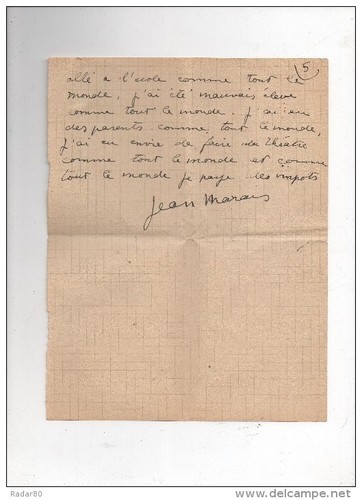 5
allé a l'école comme tout le
monde, j'ai été mauvais élève
comme tout le monde. j'ai eu
des parents comme, tout le monde,
j'ai eu envie de faire du théatre
comme tout le monde et comme
tout le monde je paye les impots
Jean Marais
Radar80
www.delcampe.net